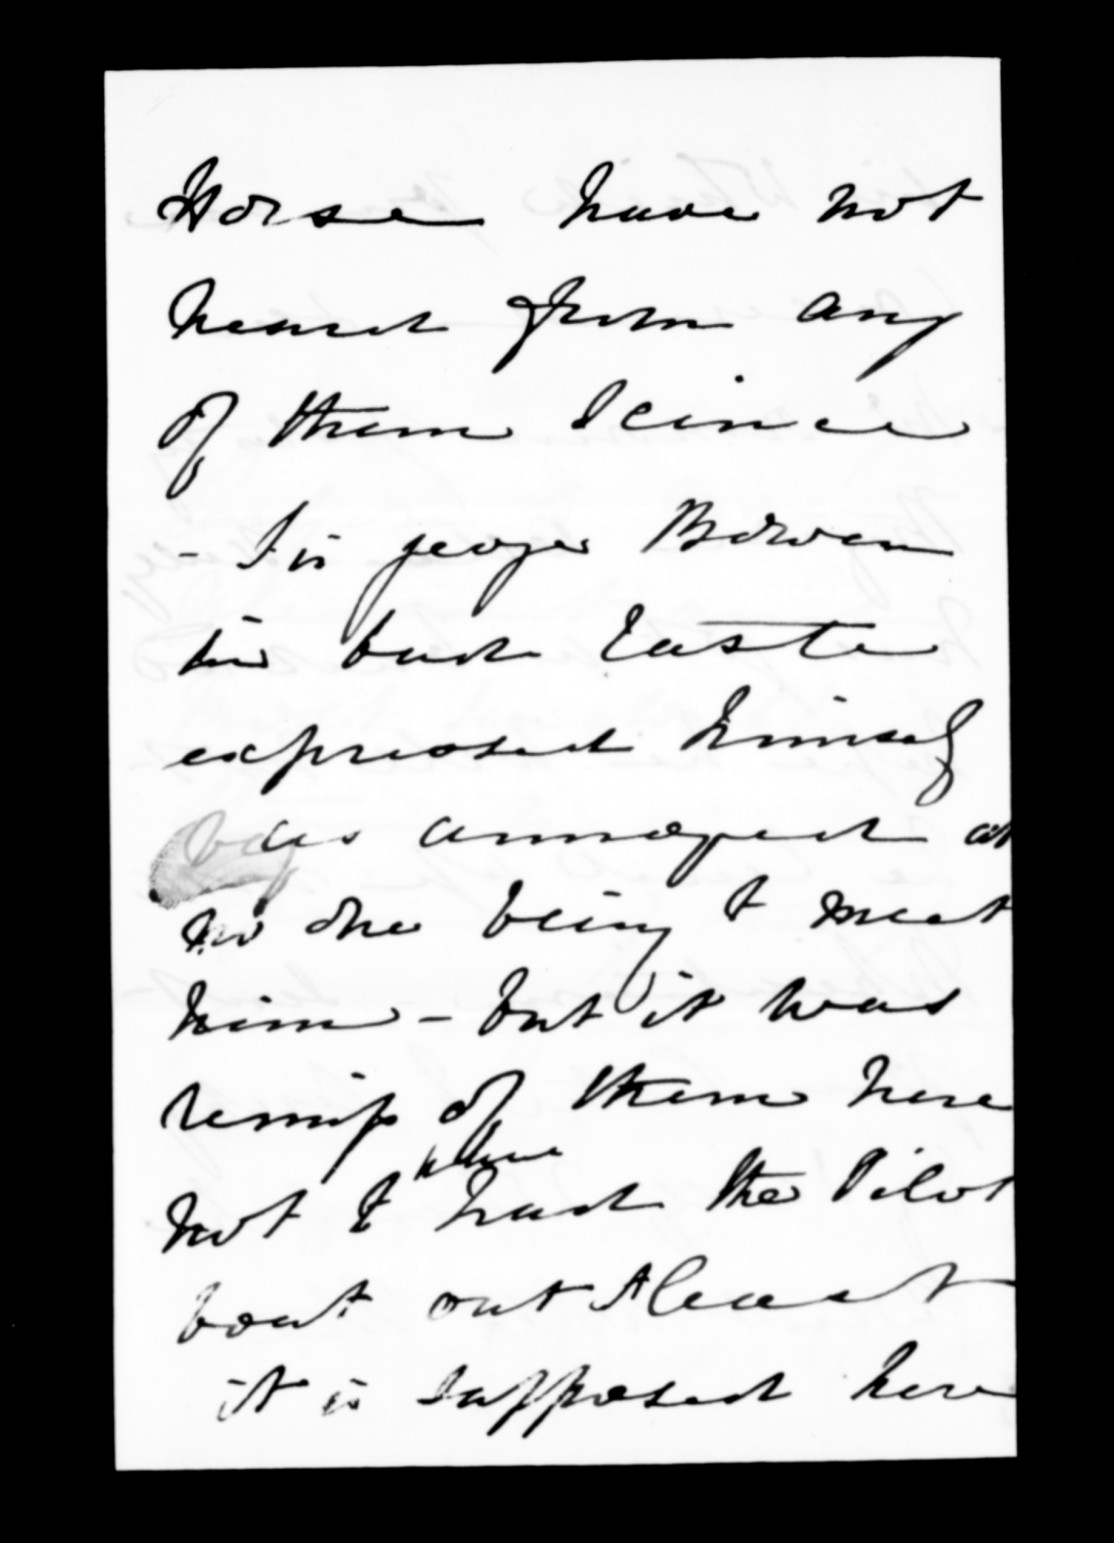 Horse have not
heard from any
of them Scince
- Sir george Bowen
has bad taste
expressed himself
as annoyed at
no one being t meet
him - but it was
remiss of them here
not t have had the Pilot
boat out At least
it is supposed here